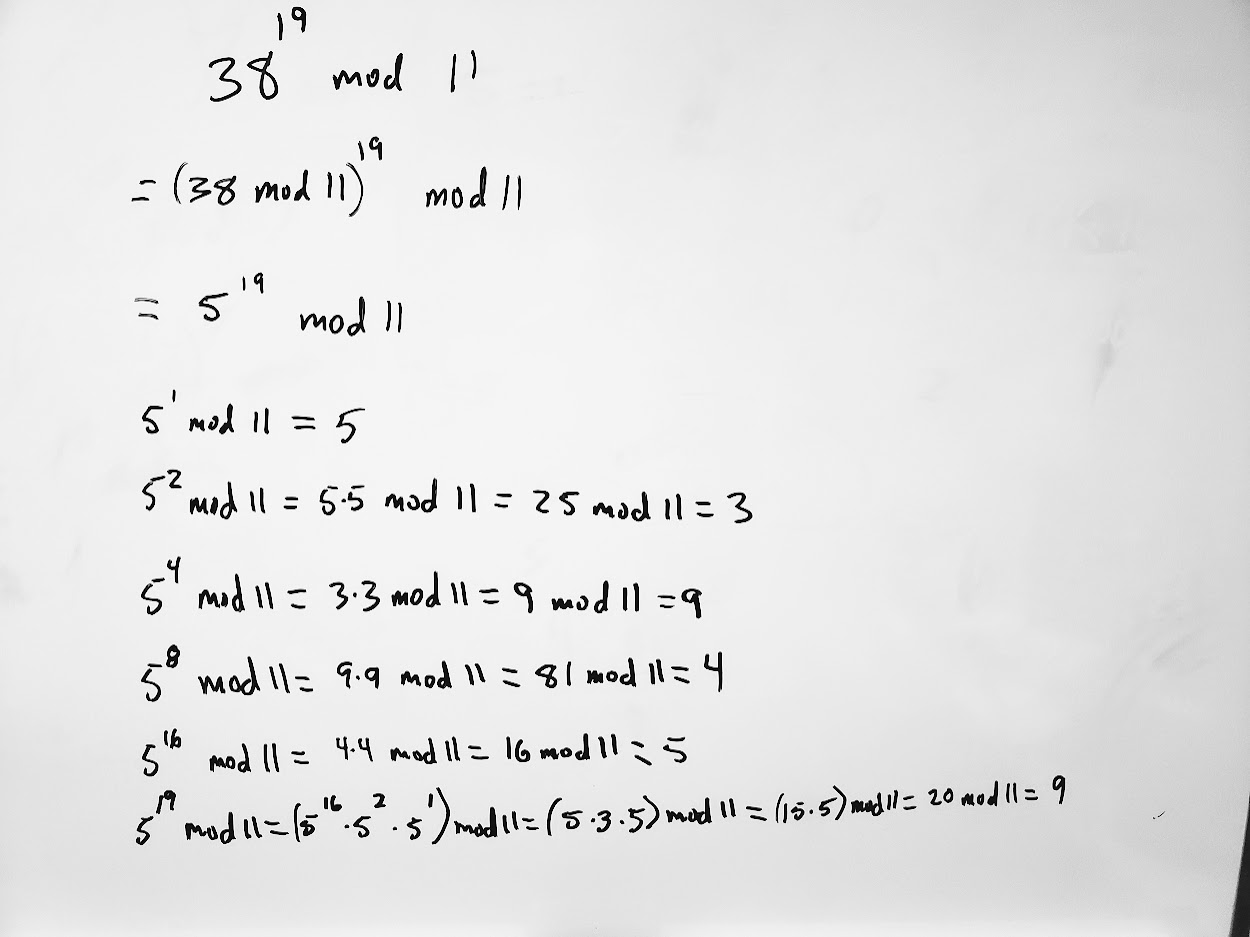 38^19 mod 11
= (38 mod 11)^19 mod 11
= 5^19 mod 11
5^1 mod 11 = 5
5^2 mod 11 = 5·5 mod 11 = 25 mod 11 = 3
5^4 mod 11 = 3·3 mod 11 = 9 mod 11 = 9
5^8 mod 11 = 9·9 mod 11 = 81 mod 11 = 4
5^16 mod 11 = 4·4 mod 11 = 16 mod 11 = 5
5^19 mod 11 = (5^16·5^2·5^1) mod 11 = (5·3·5) mod 11 = (15·5) mod 11 = 20 mod 11 = 9